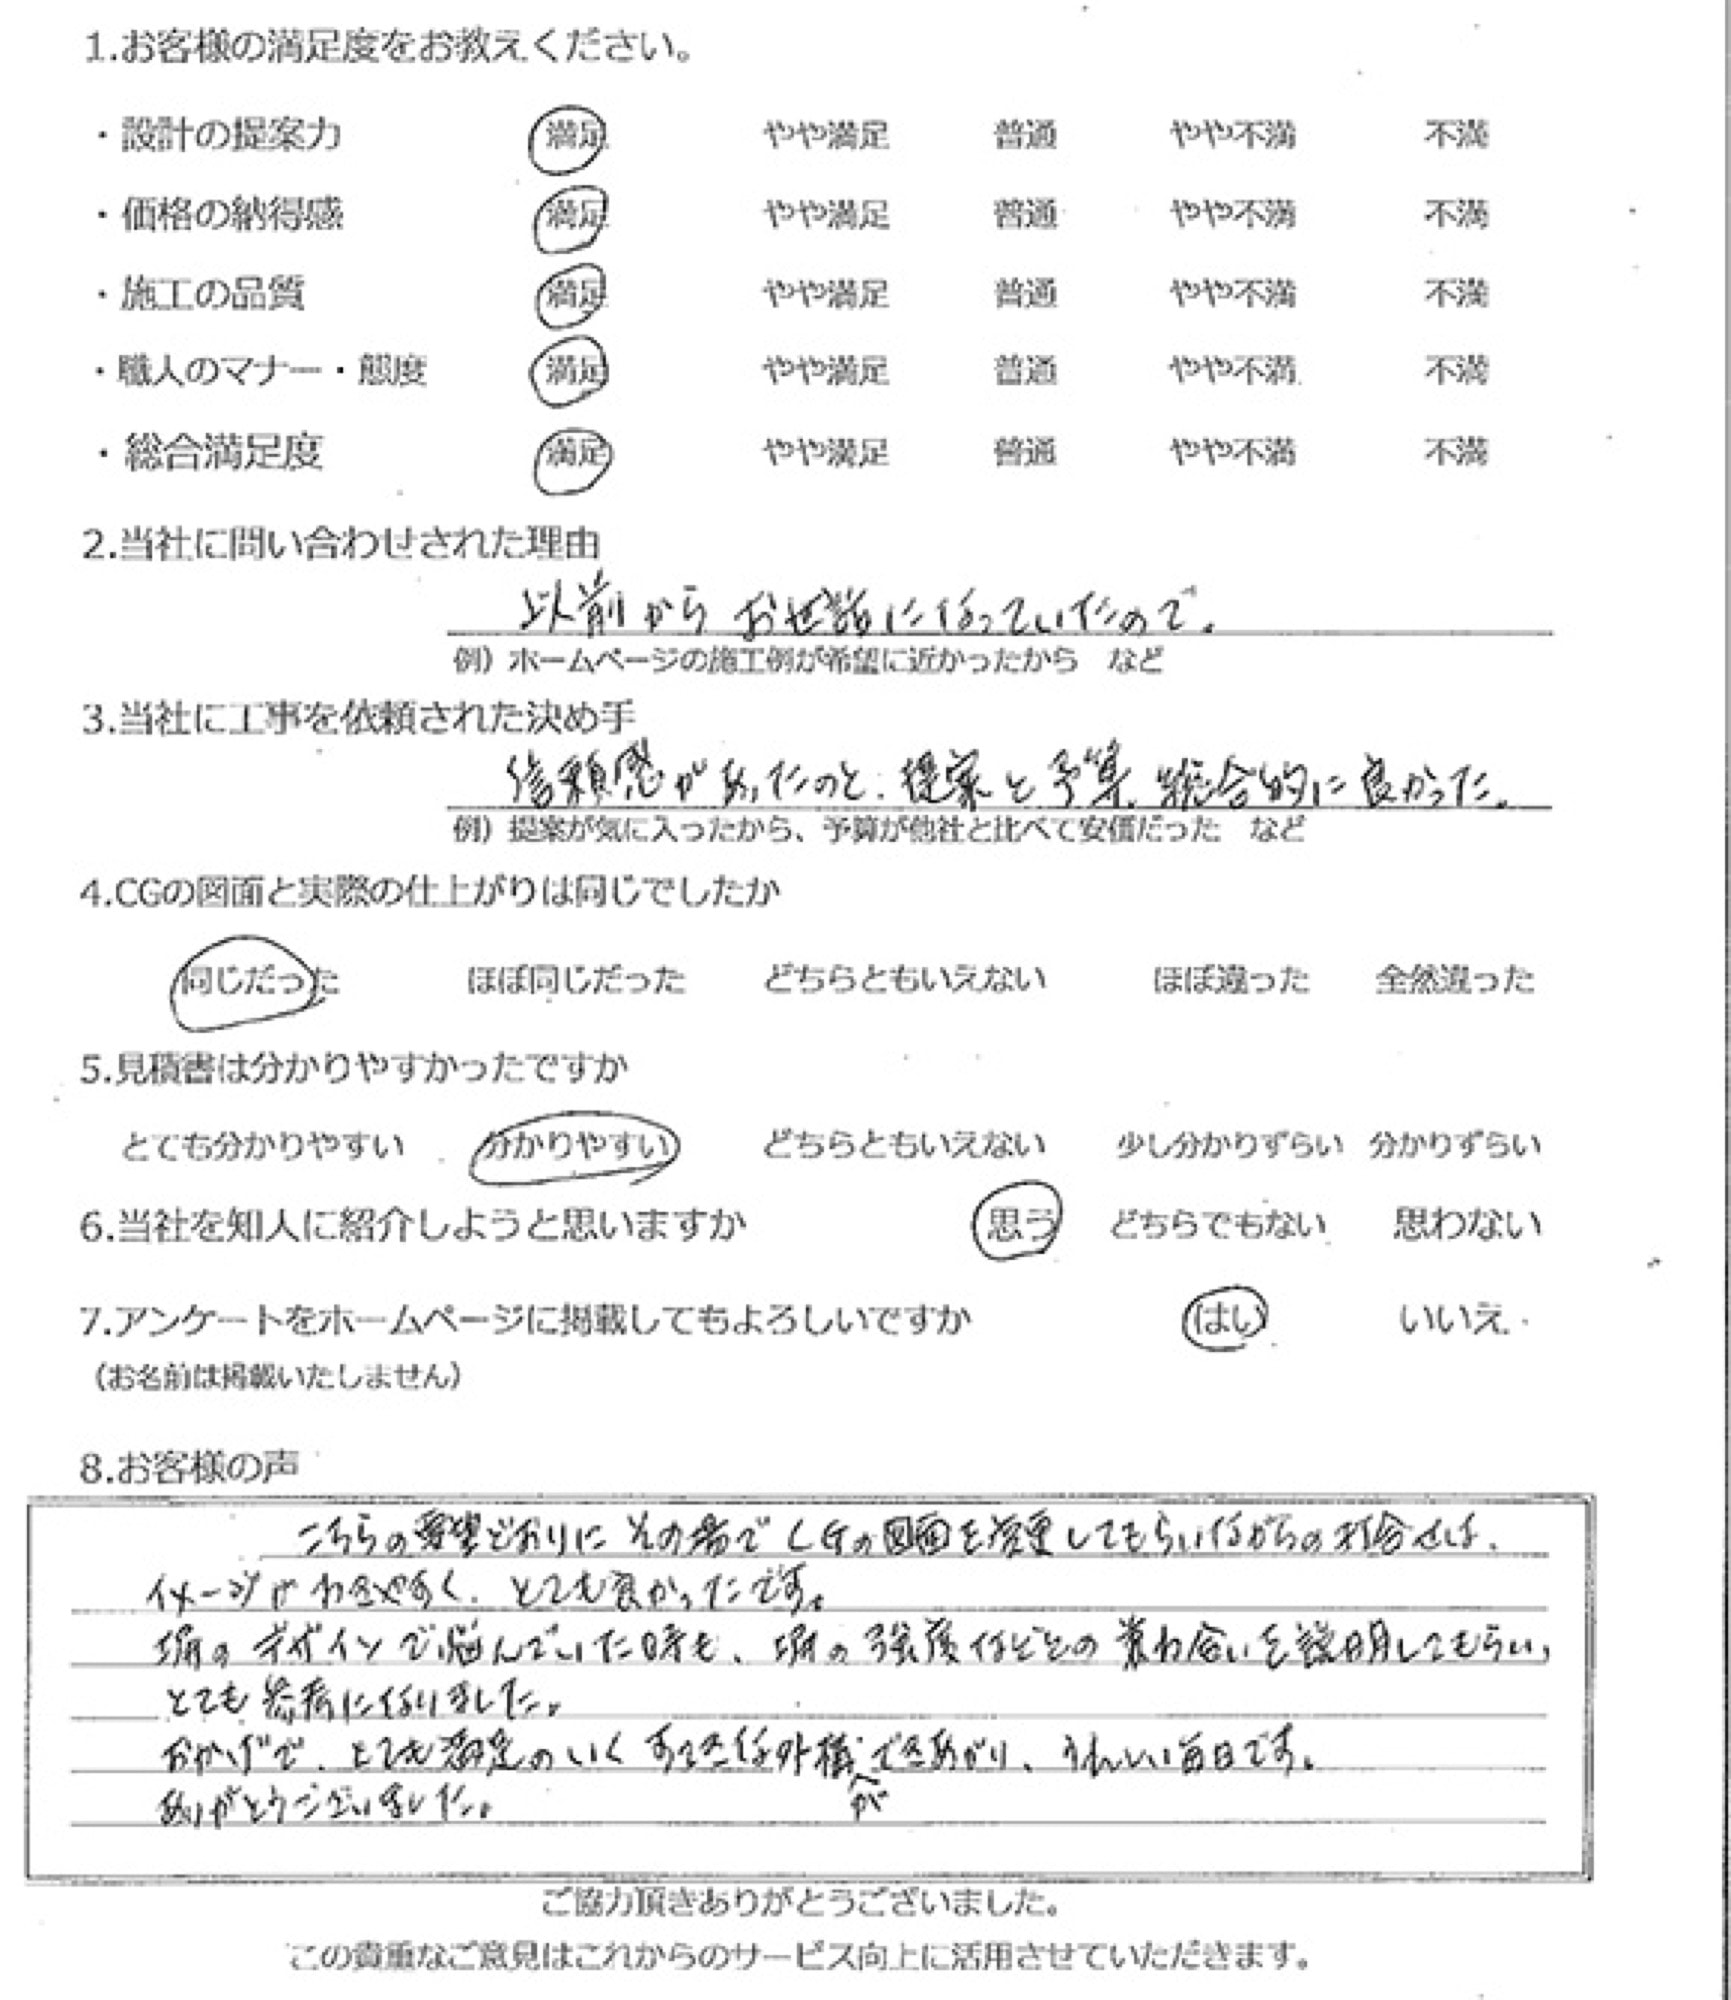 1.お客様の満足度をお教えください。
・設計の提案力 満足 やや満足 普通 やや不満 不満
・価格の納得感 満足 やや満足 普通 やや不満 不満
・施工の品質 満足 やや満足 普通 やや不満 不満
・職人のマナー・態度 満足 やや満足 普通 やや不満 不満
・総合満足度 満足 やや満足 普通 やや不満 不満
2.当社に問い合わせされた理由
以前からお世話になっていたので。
例）ホームページの施工例が希望に近かったから など
3.当社に工事を依頼された決め手
信頼感があったのと、提案と予算、総合的に良かった。
例）提案が気に入ったから、予算が他社と比べて安価だった など
4.CGの図面と実際の仕上がりは同じでしたか
同じだった ほぼ同じだった どちらともいえない ほぼ違った 全然違った
5.見積書は分かりやすかったですか
とても分かりやすい 分かりやすい どちらともいえない 少し分かりずらい 分かりずらい
6.当社を知人に紹介しようと思いますか 思う どちらでもない 思わない
7.アンケートをホームページに掲載してもよろしいですか はい いいえ
（お名前は掲載いたしません）
8.お客様の声
こちらの要望どおりにその場でCGの図面を変更してもらいながらの打合せは、
イメージがわきやすく、とても良かったです。
塀のデザインで悩んでいた時も、塀の強度などとの兼ね合いを説明してもらい、
とても参考になりました。
おかげで、とても満足のいくすてきな外構ができあがり、うれしい毎日です。
ありがとうございました。
ご協力頂きありがとうございました。
この貴重なご意見はこれからのサービス向上に活用させていただきます。